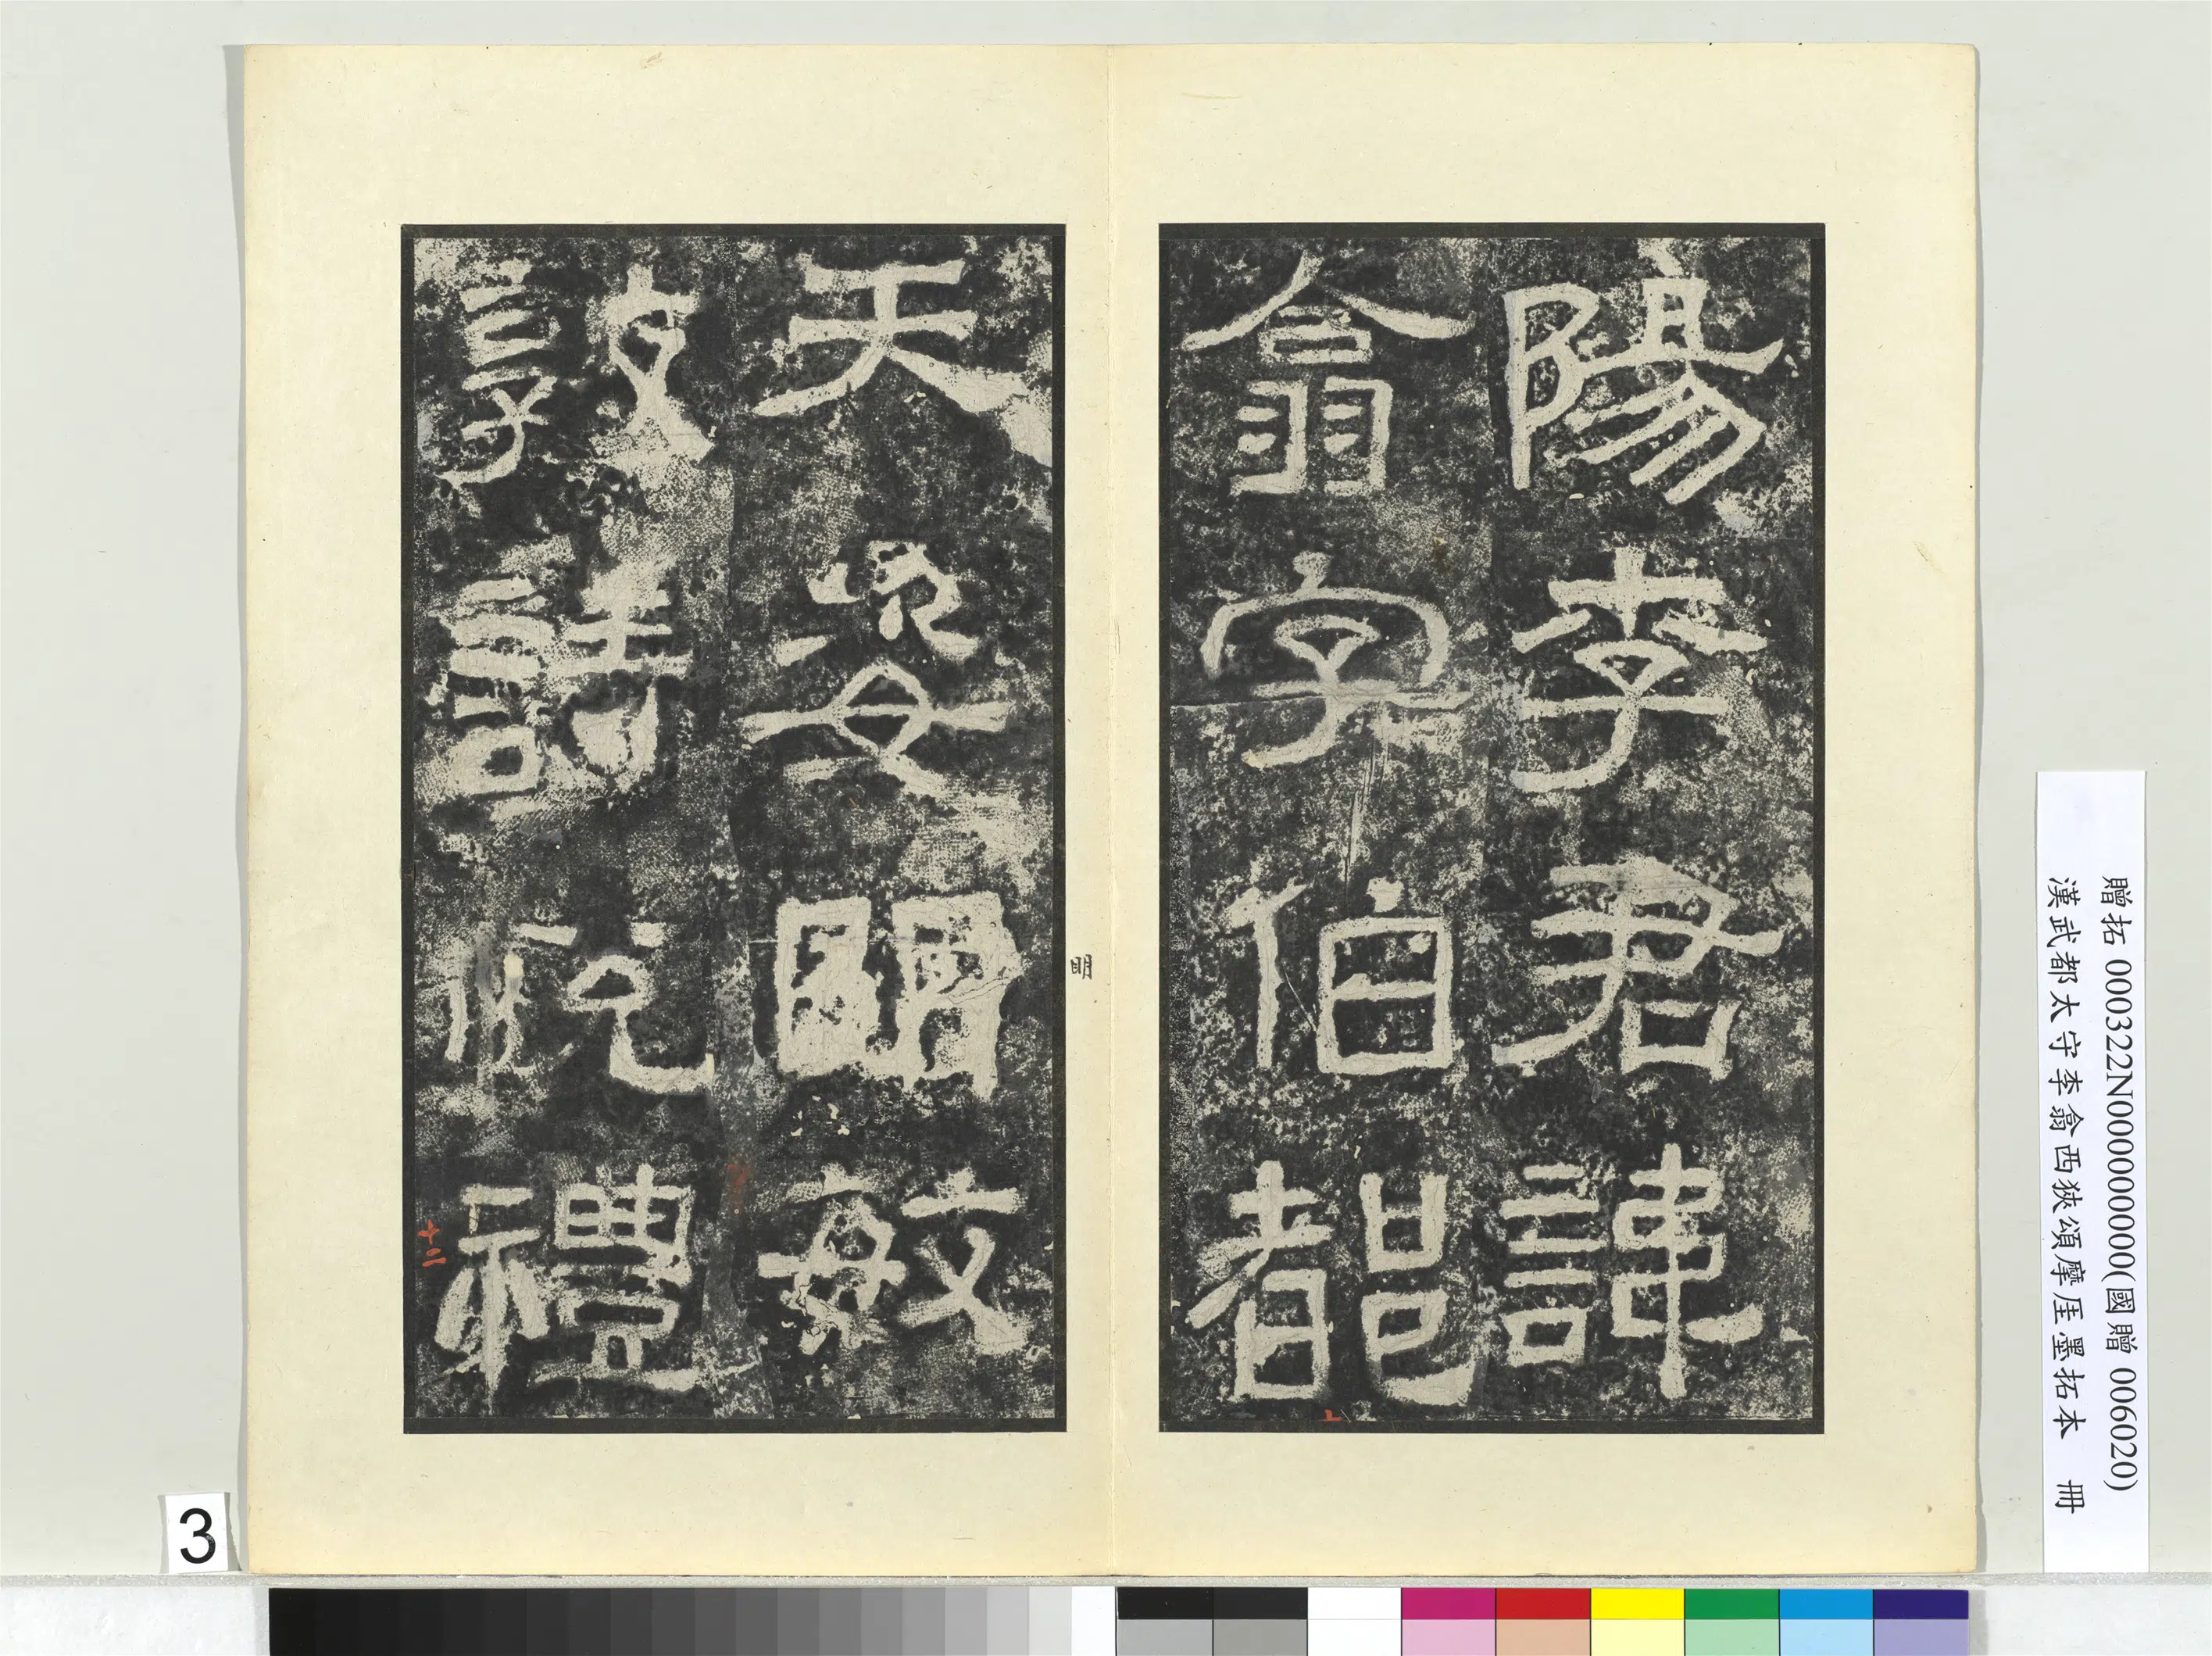 陽李君諱
翕字伯都
天姿明敏
敦詩悅禮
十二
3
贈拓 000322N000000000(國贈 006020)
漢武都太守李翕西狹頌摩厓墨拓本 冊